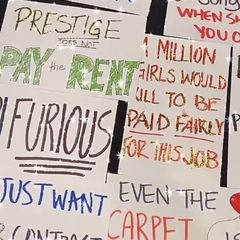 PRESTIGE
DOES NOT
PAY the RENT
A MILLION
GIRLS WOULD
KILL TO BE
PAID FAIRLY
FOR THIS JOB
WHEN
YOU
FURIOUS
JUST WANT
CONTRACT
EVEN THE
CARPET